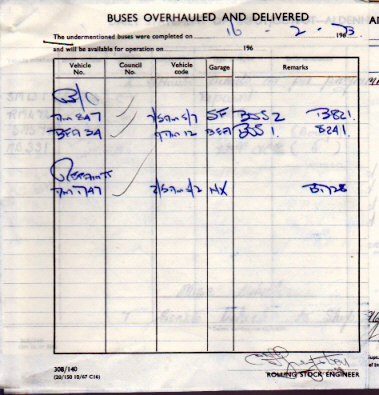 BUSES OVERHAULED AND DELIVERED
The undermentioned buses were completed on 16 - 2 - 73 196
and will be available for operation on 196
Vehicle No. Council No. Vehicle code Garage Remarks
B/O
RM 847 7/5RM5/7 SF BSS 2 B821.
BEA 34 9RM12 BEA BSS 1. B241.
Repaints
RM 1747 7/5RM5/2 NX B1728
308/140
(20/150 10/67 C16)
ROLLING STOCK ENGINEER